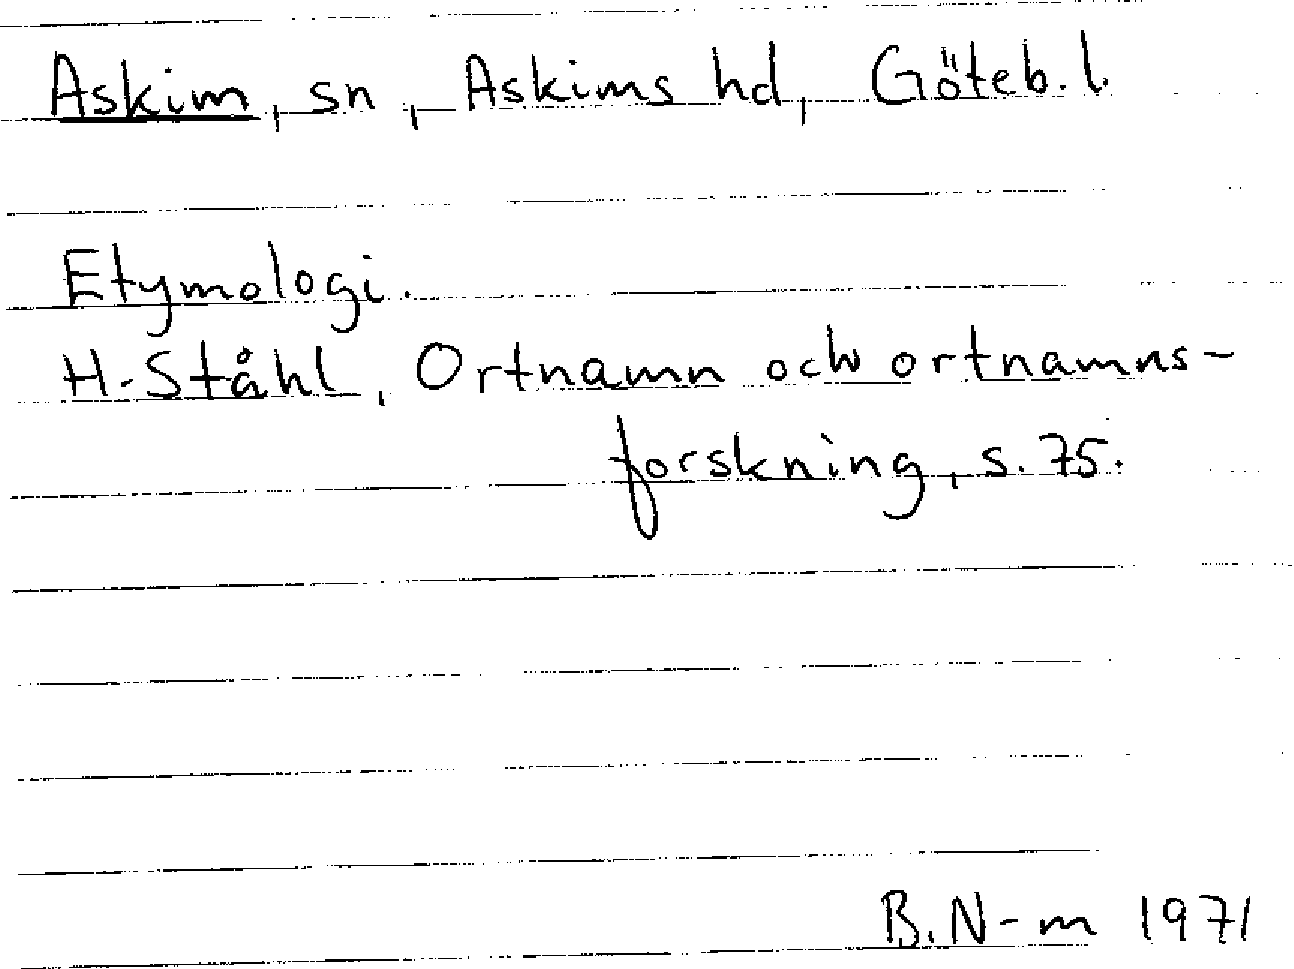 Askim, sn, Askims hd, Göteb. l.
Etymologi.
H. Ståhl, Ortnamn och ortnamns-
forskning, s. 75.
B. N-m 1971